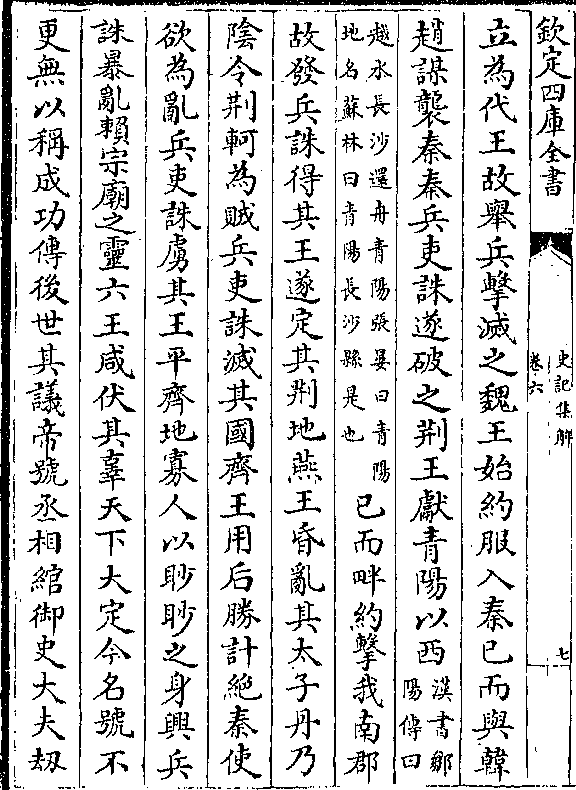 欽定四庫全書
史記集解
卷六
七
立為代王故舉兵擊滅之魏王始約服入秦已而與韓
趙謀襲秦秦兵吏誅遂破之荆王獻青陽以西漢書鄒陽傳曰
越水長沙還舟青陽張晏曰青陽地名蘇林曰青陽長沙縣是也已而畔約擊我南郡
故發兵誅得其王遂定其荆地燕王昏亂其太子丹乃
陰令荆軻為賊兵吏誅滅其國齊王用后勝計絶秦使
欲為亂兵吏誅虜其王平齊地寡人以眇眇之身興兵
誅暴亂賴宗廟之靈六王咸伏其辜天下大定今名號不
更無以稱成功傳後世其議帝號丞相綰御史大夫刼